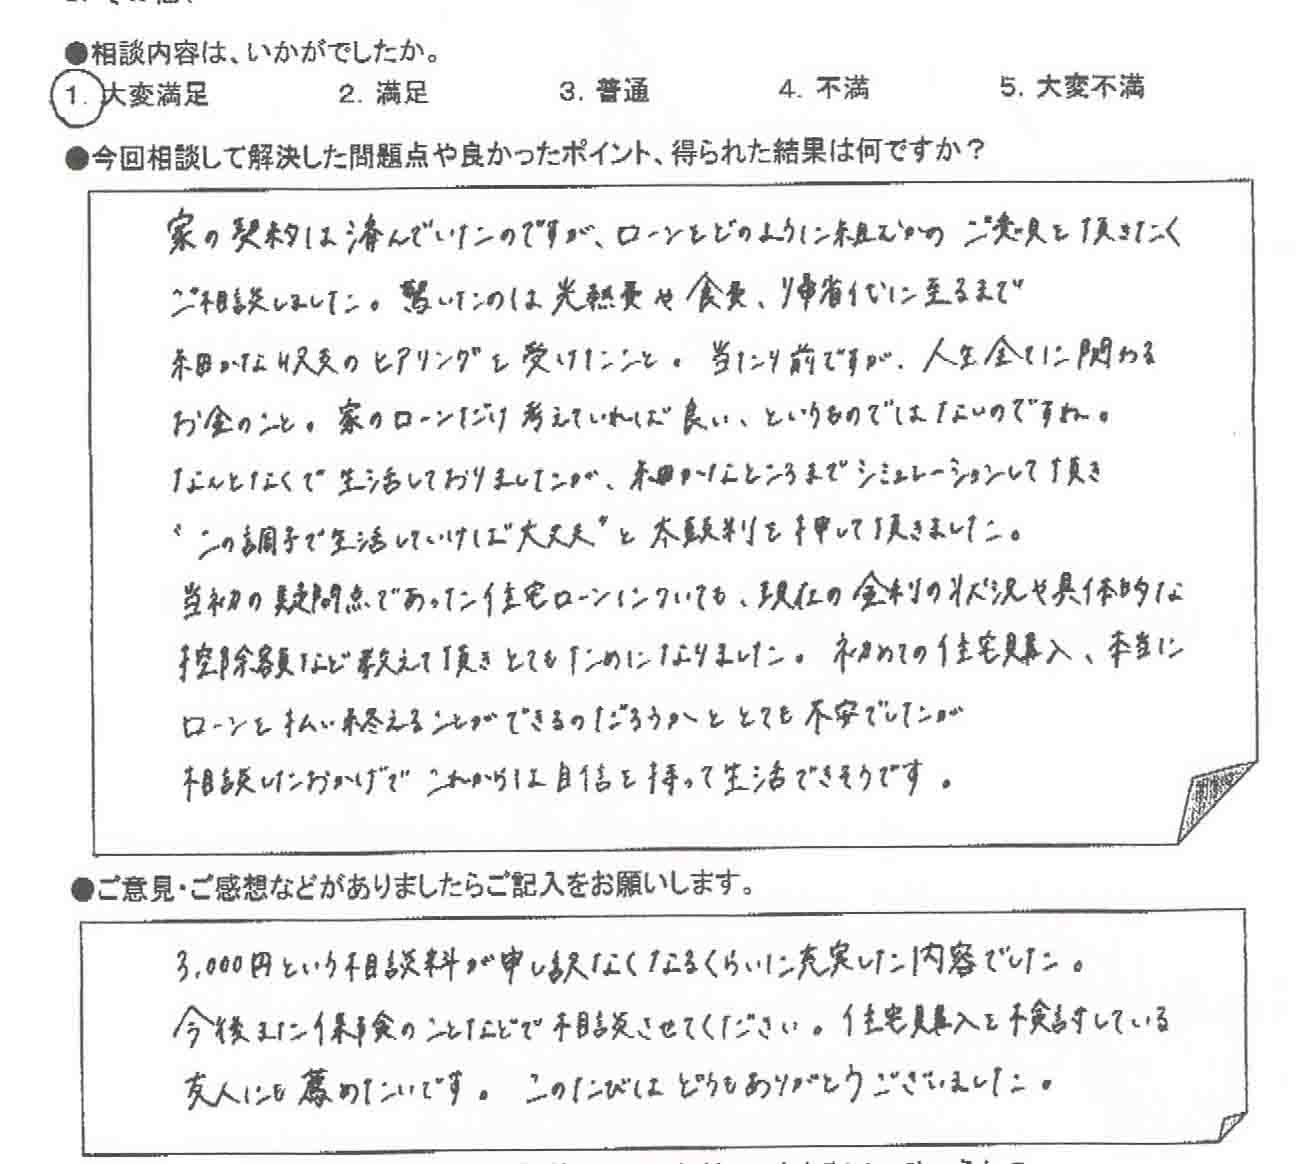 ●相談内容は、いかがでしたか。
1. 大変満足 2. 満足 3. 普通 4. 不満 5. 大変不満
●今回相談して解決した問題点や良かったポイント、得られた結果は何ですか？
家の契約は済んでいたのですが、ローンをどのように組むかの ご意見を頂きたく
ご相談しました。驚いたのは光熱費や食費、帰省代に至るまで
細かな収支のヒアリングを受けたこと。当たり前ですが、人生全てに関わる
お金のこと。家のローンだけ考えていれば良い、というものではないのですね。
なんとなくで生活しておりましたが、細かなところまでシミュレーションして頂き
"この調子で生活していけば大丈夫"と太鼓判を押して頂きました。
当初の疑問点であった住宅ローンについても、現在の金利の状況や具体的な
控除額など教えて頂きとてもためになりました。初めての住宅購入、本当に
ローンを払い終えることができるのだろうかと とても不安でしたが
相談したおかげで これからは自信を持って生活できそうです。
●ご意見・ご感想などがありましたらご記入をお願いします。
3,000円という相談料が申し訳なくなるくらいに充実した内容でした。
今後また保険のことなどで相談させてください。住宅購入を検討している
友人にも薦めたいです。このたびはどうもありがとうございました。